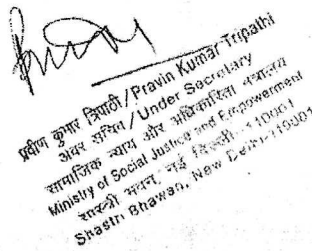 प्रवीण कुमार त्रिपाठी/Pravin Kumar Tripathi
अवर सचिव/Under Secretary
सामाजिक न्याय और अधिकारिता मंत्रालय
Ministry of Social Justice and Empowerment
शास्त्री भवन, नई दिल्ली-110001
Shastri Bhawan, New Delhi-110001